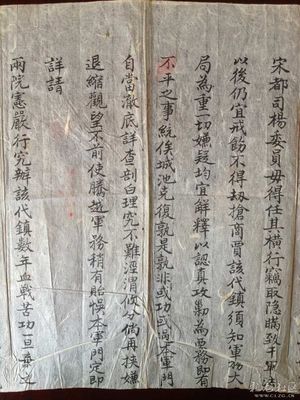 宋都司楊委員毋得任其橫行竊取隱瞞致干軍
以後仍宜戒飭不得刼搶商賈該代鎮須知軍功大
局為重一切嫌疑均宜解釋以認真攻剿為要務即有
不平之事統俟城池克復孰是孰非或功或 本軍門
自當澈底詳查剖白理究不難涇渭攸分倘再挾嫌
退縮觀望不前使騰越軍務稍有貽悞本軍門定即
詳請
兩院憲嚴行究辦該代鎮數年血戰苦功一旦棄之